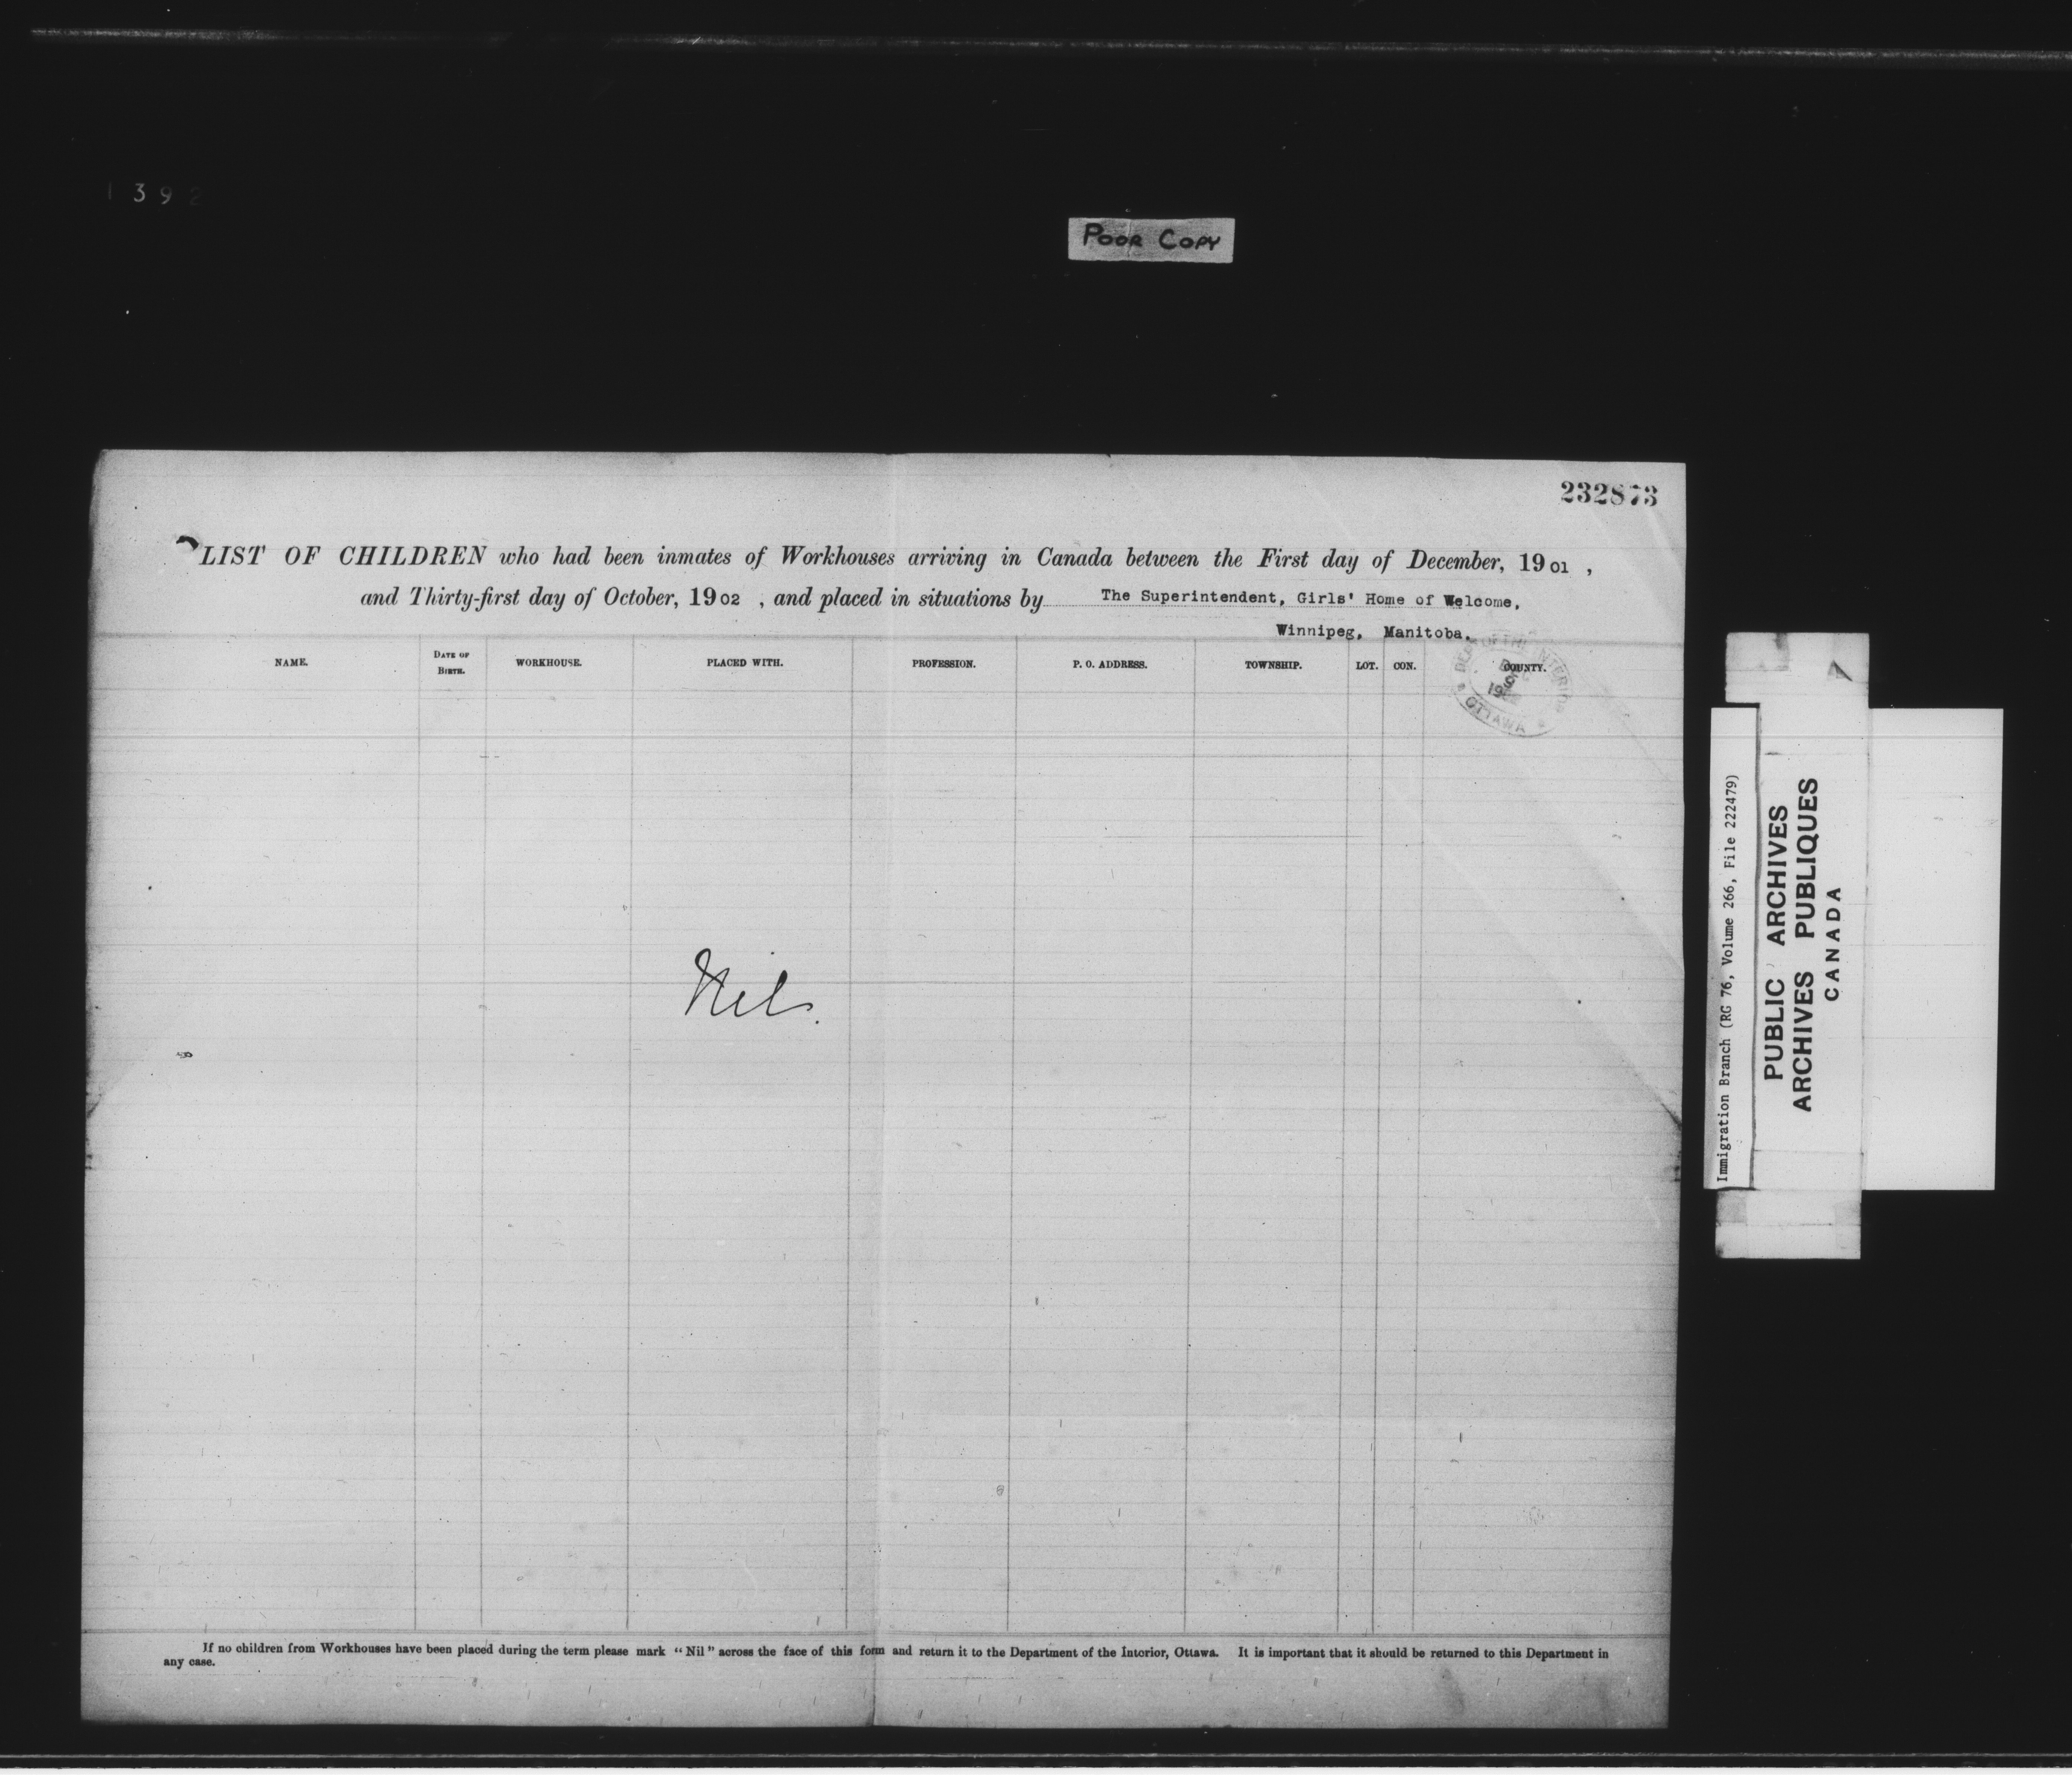 1392
POOR COPY
232873
LIST OF CHILDREN who had been inmates of Workhouses arriving in Canada between the First day of December, 1901 ,
and Thirty-first day of October, 1902 , and placed in situations by The Superintendent, Girls' Home of Welcome,
Winnipeg, Manitoba.
NAME. DATE OF BIRTH. WORKHOUSE. PLACED WITH. PROFESSION. P. O. ADDRESS. TOWNSHIP. LOT. CON. COUNTY.
DEPT OF THE INTERIOR
OTTAWA
Nil.
If no children from Workhouses have been placed during the term please mark "Nil" across the face of this form and return it to the Department of the Interior, Ottawa. It is important that it should be returned to this Department in
any case.
Immigration Branch (RG 76, Volume 266, File 222479)
PUBLIC ARCHIVES
ARCHIVES PUBLIQUES
CANADA